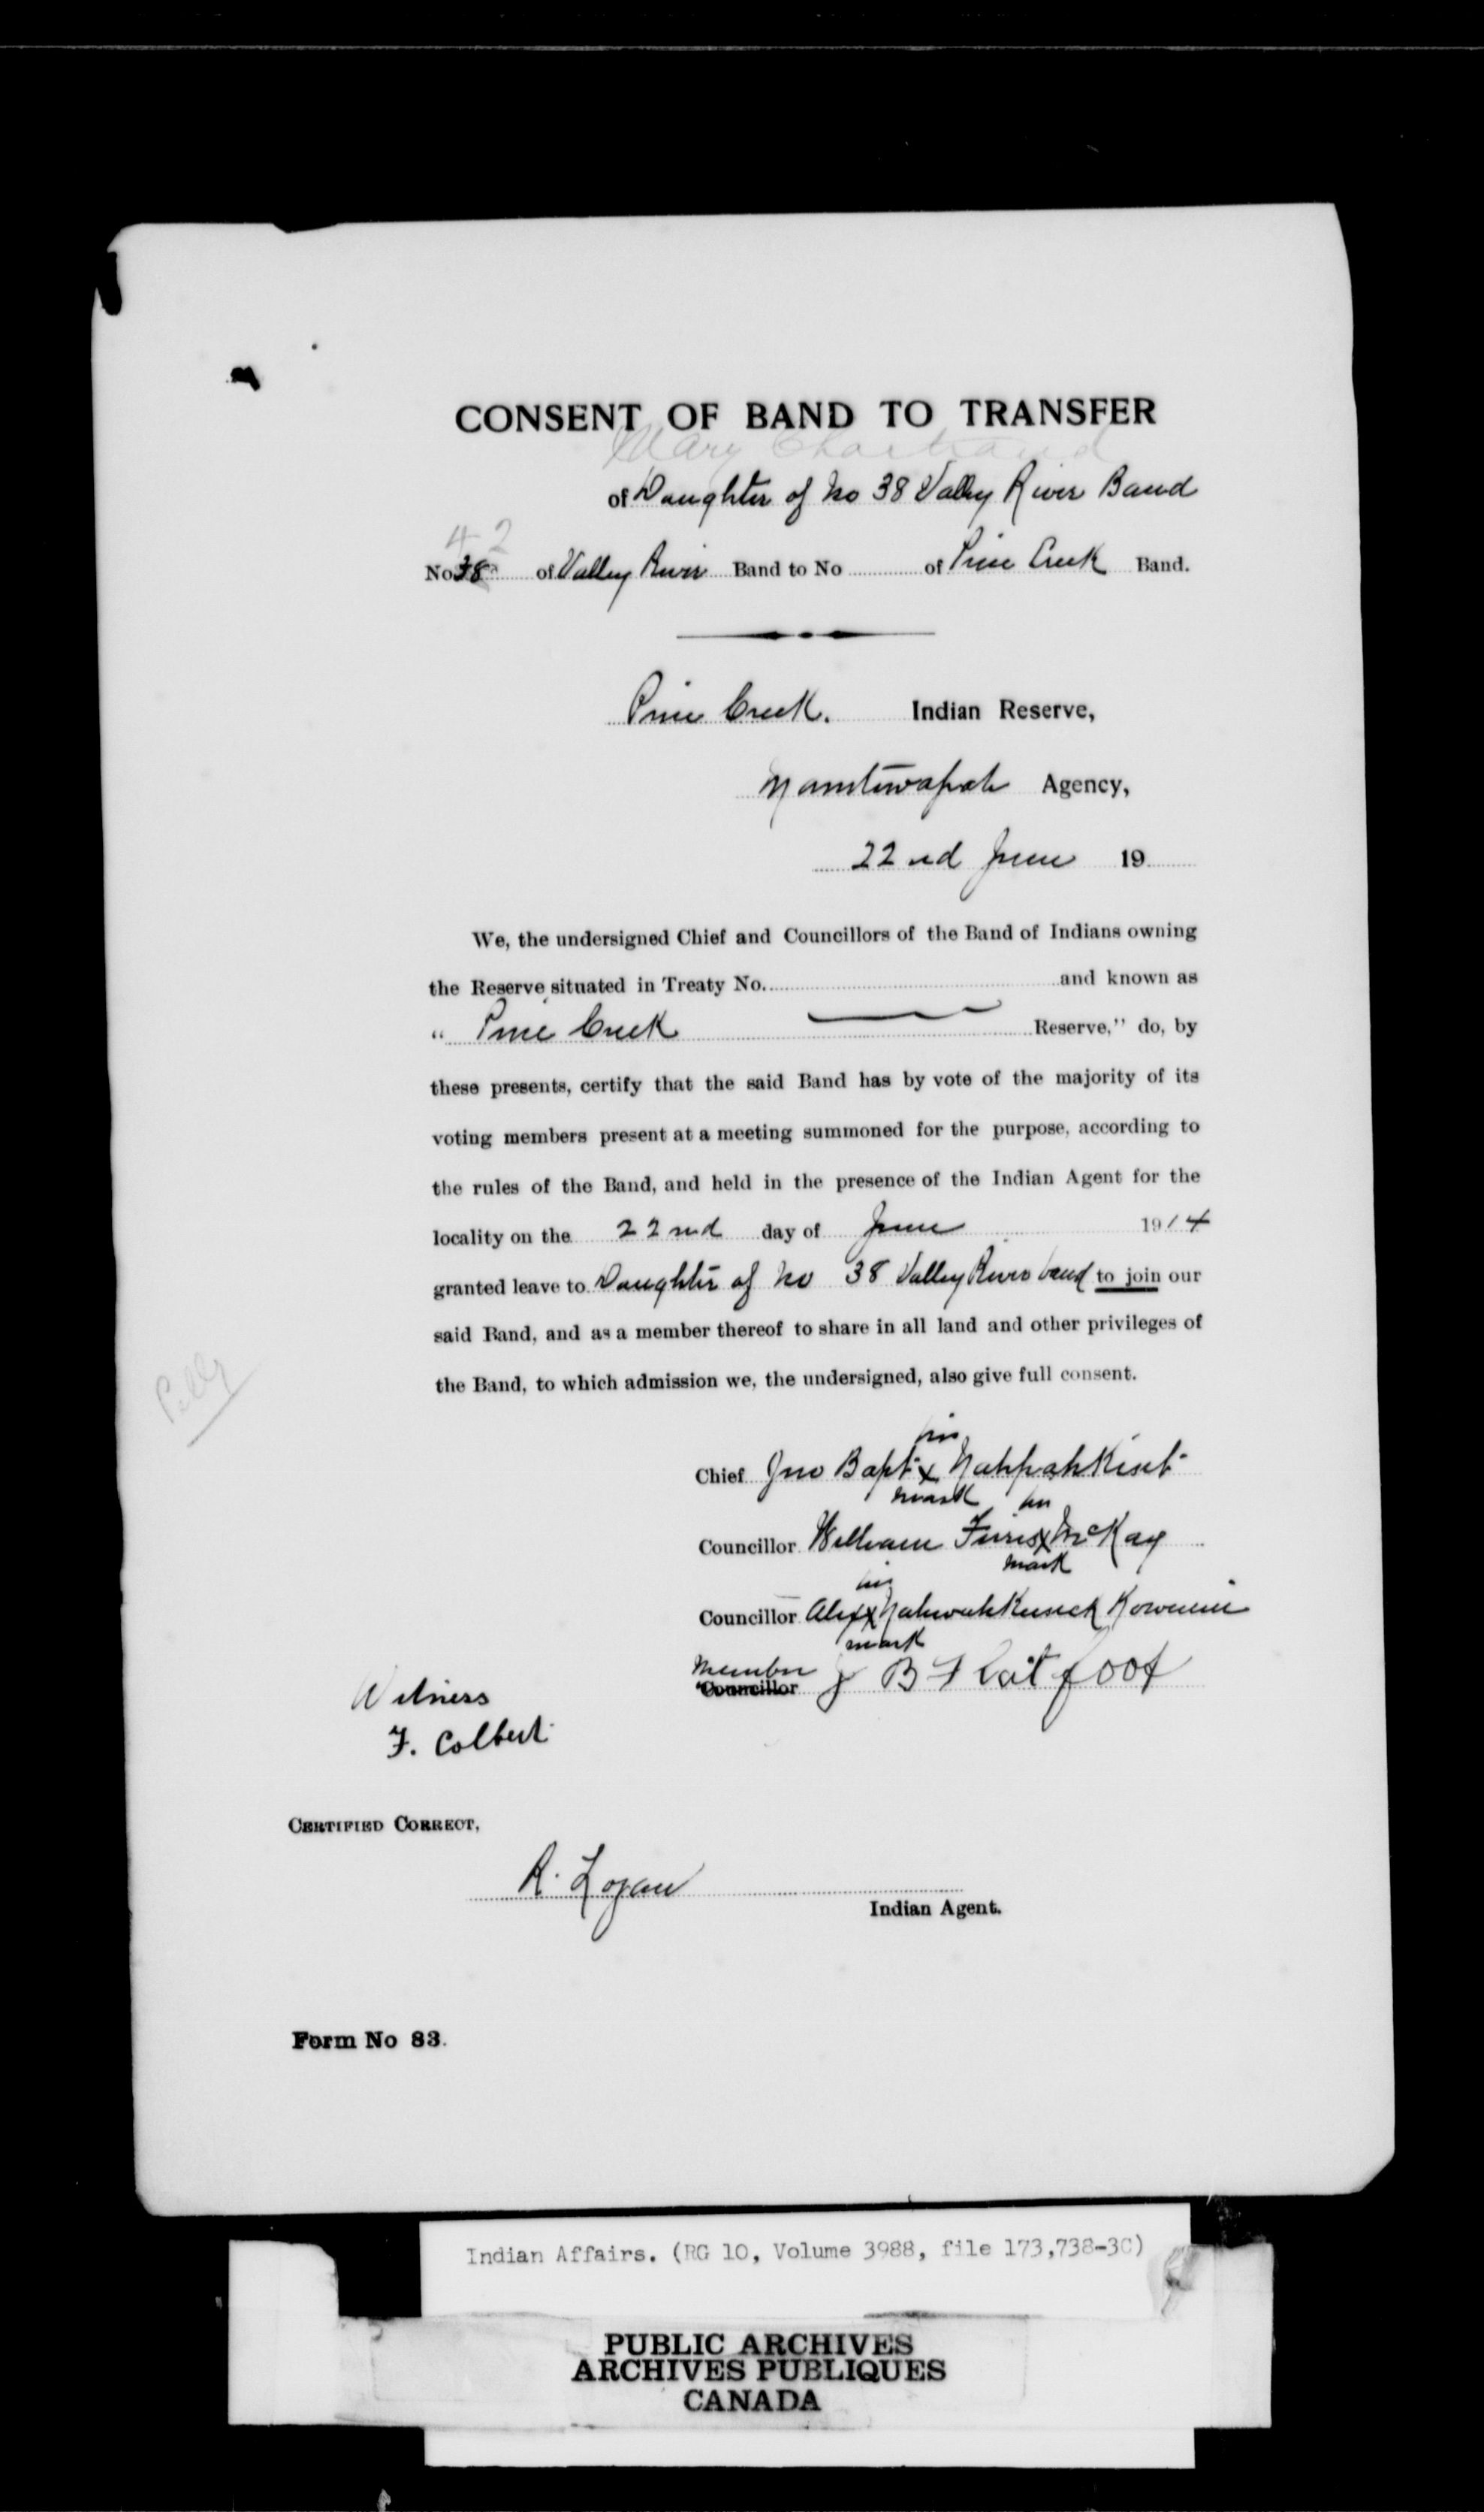 CONSENT OF BAND TO TRANSFER
Mary Chartrand
of Daughter of No 38 Valley River Band
42
No 38 of Valley River Band to No of Pine Creek Band.
Pine Creek. Indian Reserve,
Agency,
22nd June 19
We, the undersigned Chief and Councillors of the Band of Indians owning
the Reserve situated in Treaty No. and known as
" Pine Creek Reserve," do, by
these presents, certify that the said Band has by vote of the majority of its
voting members present at a meeting summoned for the purpose, according to
the rules of the Band, and held in the presence of the Indian Agent for the
locality on the 22nd day of June 1914
granted leave to Daughter of No 38 Valley River band to join our
said Band, and as a member thereof to share in all land and other privileges of
the Band, to which admission we, the undersigned, also give full consent.
Pelly
his
Chief Jno Bapt x Nahpahkisit
mark his
Councillor William x McKay
mark
his
Councillor Alex x
mark
Member
Councillor J B Flatfoot
Witness
F. Colbert
CERTIFIED CORRECT,
R. Logan
Indian Agent.
Form No 83.
Indian Affairs. (RG 10, Volume 3988, file 173,738-3C)
PUBLIC ARCHIVES
ARCHIVES PUBLIQUES
CANADA